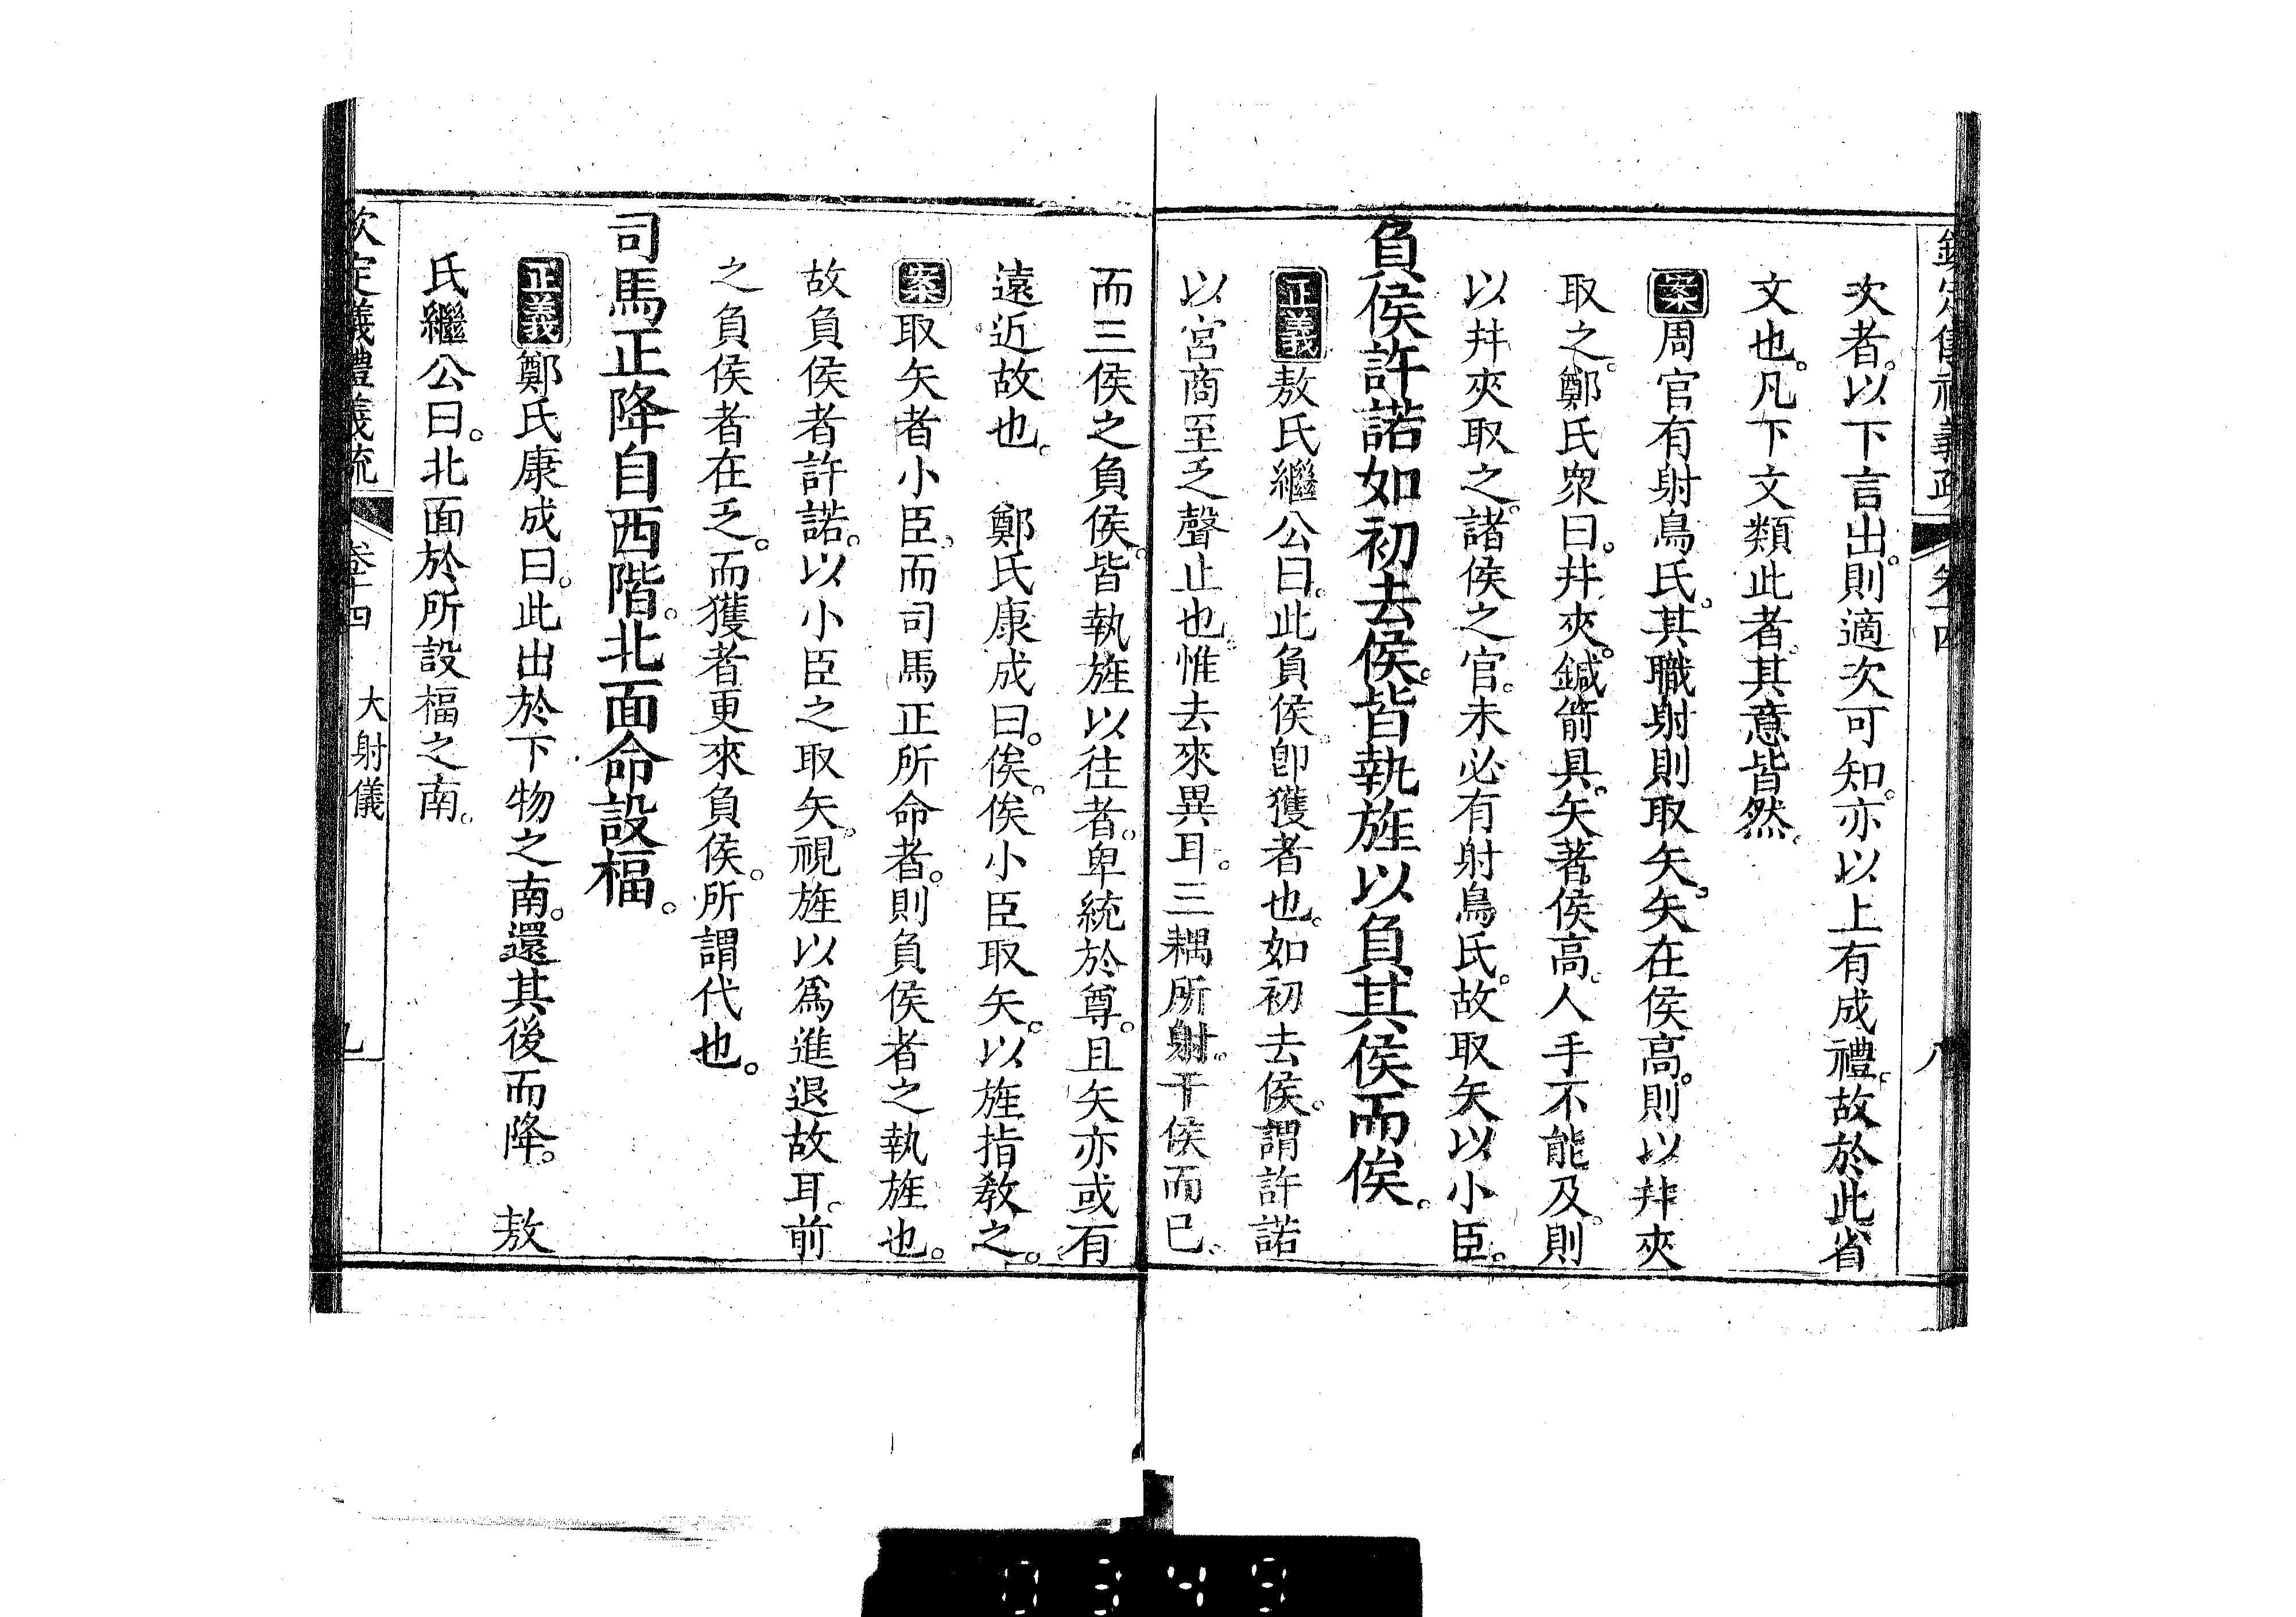 欽定儀禮義疏 卷十四 八
次者。以下言出。則適次可知。亦以上有成禮。故於此省
文也。凡下文類此者。其意皆然。
案周官有射鳥氏。其職射則取矢。矢在侯高。則以幷夾
取之。鄭氏衆曰。幷夾。鍼箭具。矢著侯高。人手不能及。則
以幷夾取之。諸侯之官。未必有射鳥氏。故取矢以小臣。
負侯許諾如初去侯。皆執旌以負其侯而俟。
正義敖氏繼公曰。此負侯。卽獲者也。如初去侯。謂許諾
以宮商至乏聲止也。惟去來異耳。三耦所射。干侯而已。
而三侯之負侯。皆執旌以往者。卑統於尊。且矢亦或有
遠近故也。 鄭氏康成曰。俟。俟小臣取矢。以旌指教之。
案取矢者小臣。而司馬正所命者。則負侯者之執旌也。
故負侯者許諾。以小臣之取矢。視旌以爲進退故耳。前
之負侯者在乏。而獲者更來負侯。所謂代也。
司馬正降自西階。北面命設楅。
正義鄭氏康成曰。此出於下物之南。還其後而降。 敖
氏繼公曰。北面於所設楅之南。
欽定儀禮義疏 卷十四 大射儀 九
0349